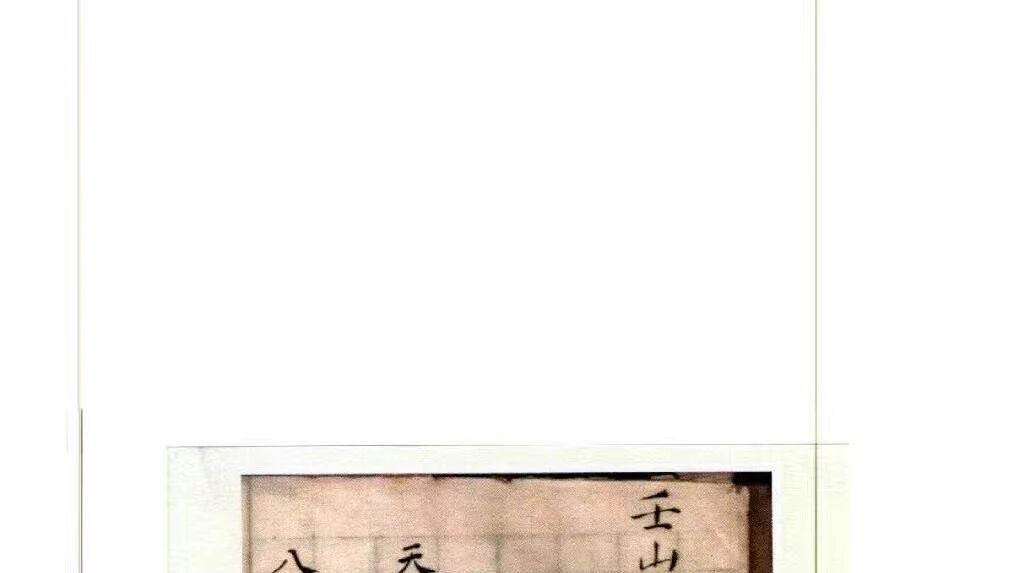 壬山
天
八